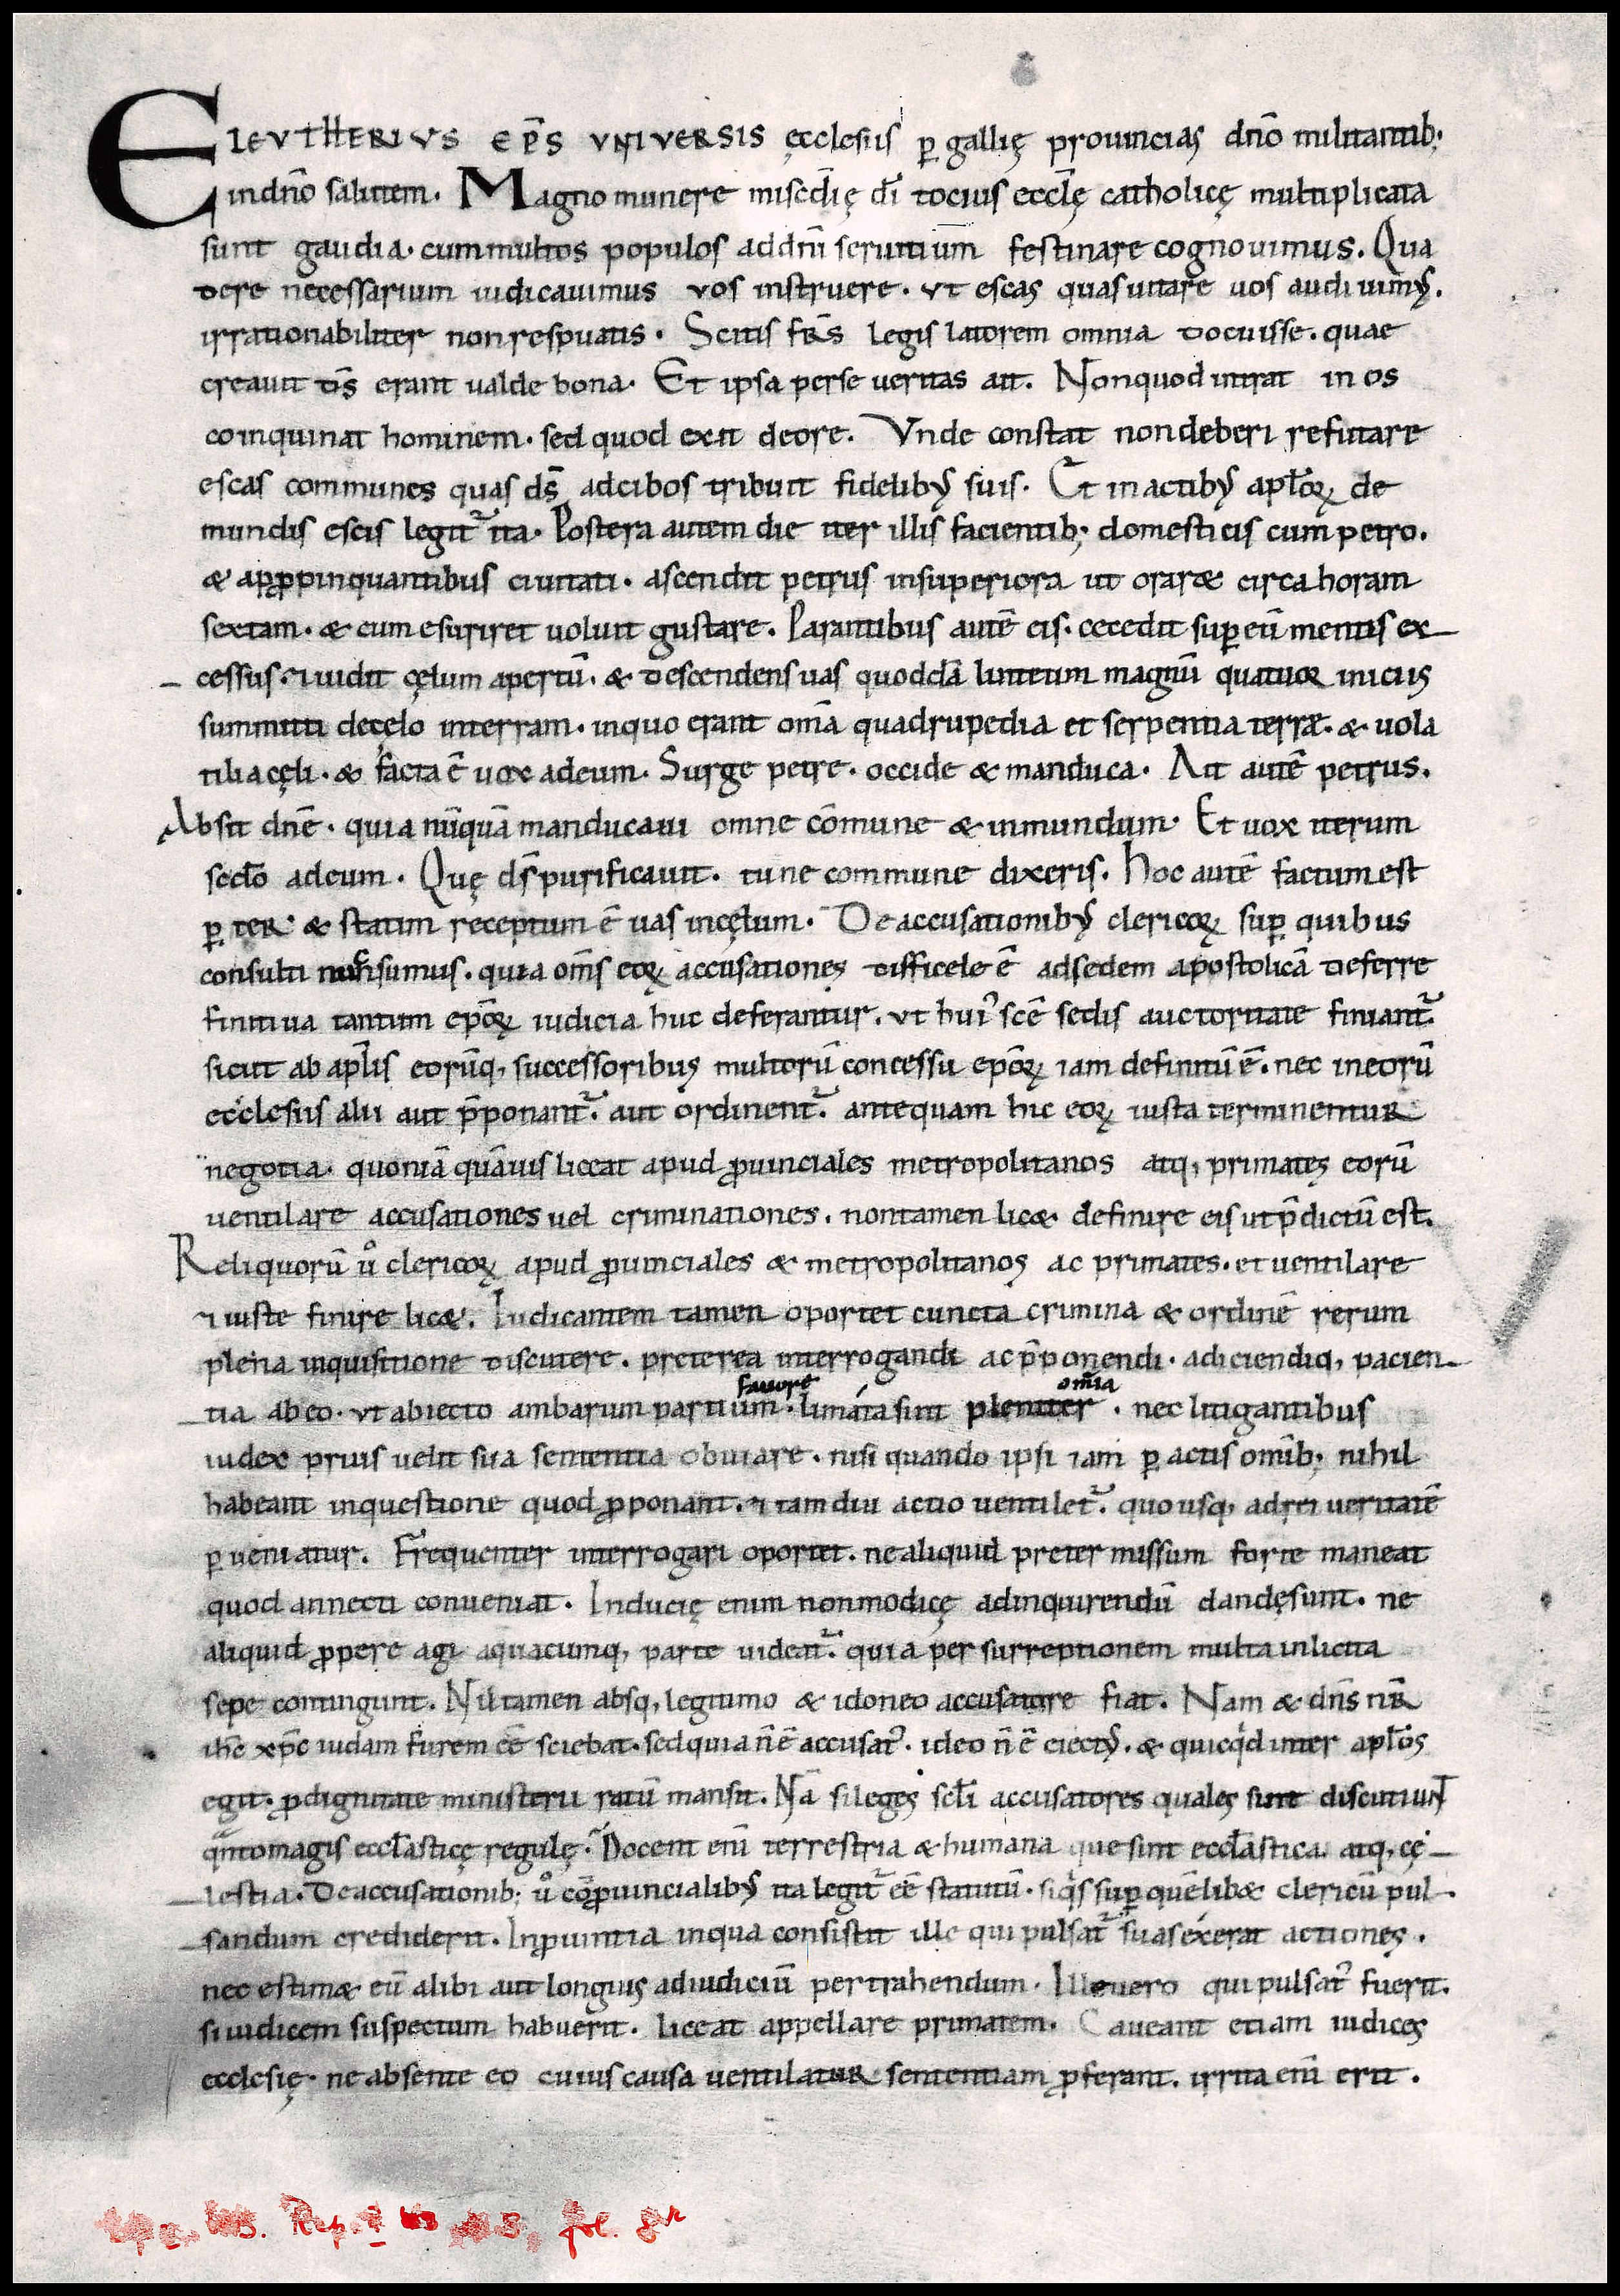 ELEVTHERIVS EP̄S VNIVERSIS ęcclesiis ꝑ gallię prouincias dn̄o militantib;
in dn̄o salutem. Magno munere misc̄dię dī tocius eccl̄ę catholicę multiplicata
sunt gaudia. cum multos populos ad dn̄i seruitiūm festinare cognouimus. Qua
dere necessarium iudicauimus vos instruere. vt escas quas uitare uos audiuimꝰ.
irrationabiliter non respuatis. Scitis fr̄s legis latorem omnia docuisse. quae
creauit d̄s erant ualde bona. Et ipsa per se ueritas ait. Non quod intrat in os
coinquinat hominem. sed quod exit de ore. Vnde constat non deberi refutare
escas communes quas d̄s ad cibos tribuit fidelibꝰ suis. Et in actibꝰ apl̄oꝝ de
mundis escis legit᷑ ita. Postera autem die iter illis facientib; domesticis cum petro.
& apꝓpinquantibus ciuitati. ascendit petrus in superiora ut orar& circa horam
sextam. & cum esuriret uoluit gustare. Parantibus autē eis. cecedit suꝑ eū mentis ex-
cessus. ⁊ uidit cęlum apertū. & descendens uas quoddā linteum magnū quatuor iniciis
summitti de cęlo in terram. in quo erant om̄a quadrupedia et serpentia terrae. & uola
tilia cęli. & facta ē uox ad eum. Surge petre. occide & manduca. Ait autē petrus.
Absit dn̄e. quia nūquā manducaui omne cōmune & inmundum. Et uox iterum
secd̄o ad eum. Quę d̄s purificauit. tu ne commune dixeris. Hoc autē factum est
ꝑ ter & statim receptum ē uas in cęlum. De accusationibꝰ clericoꝝ suꝑ quibus
consulti nuc̄ sumus. quia om̄s eoꝝ accusationes difficele ē ad sedem apostolicā deferre
finitiua tantum ep̄oꝝ iudicia huc deferantur. vt huiꝰ sc̄e sedis auctoritate finiant᷑.
sicut ab apl̄is eorūq, successoribus multorū concessu ep̄oꝝ iam definitū ē. nec in eorū
ecclesiis alii aut p̄ponant᷑. aut ordinent᷑. ante quam hic eoꝝ iusta terminentur
negotia. quoniā quāuis liceat apud ꝓuinciales metropolitanos atq, primates eorū
uentilare accusationes uel criminationes. non tamen lic& definire eis ut p̄dictū est.
Reliquorū uͦ clericoꝝ apud ꝓuinciales & metropolitanos ac primates. et uentilare
⁊ iuste finire lic&. Iudicantem tamen oportet cuncta crimina & ordinē rerum
plena inquisitione discutere. preterea interrogandi ac p̄ponendi. adiciendiq, pacien-
tia ab eo. vt abiecto ambarum partium fauore. limáta sint pleniter om̄ia. nec litigantibus
iudex prius uelit sua sententia obuiare. nisi quando ipsi iam ꝑactis om̄ib; nihil
habeant in questione quod ꝓponant. ⁊ tam diu actio uentilet᷑. quo usq, ad rei ueritatē
ꝑueniatur. Frequenter interrogari oportet. ne aliquid preter missum forte maneat
quod annecti conueniat. Inducię enim non modicę ad inquirendū dandę sunt. ne
aliquid ꝓpere agi a quacunq, parte uideat᷑. quia per surreptionem multa inlicita
sepe contingunt. Nil tamen absq, legitimo & idoneo accusatore fiat. Nam & dn̄s nr̄
ih̄c xp̄c iudam furem eē sciebat. sed quia n̄ ē accusatꝰ. ideo n̄ ē eiectꝰ. & quicq̇d inter apl̄os
egit. ꝓ dignitate ministerii ratū mansit. Nā si leges scl̄i accusatores quales sint discutiunt
qn̄to magis eccl̄asticę regulę. Docent enī terrestria & humana que sint eccl̄astica. atq, cę-
lestia. De accusationib; uͦ cōꝓuincialibꝰ ita legit᷑ eē statutū. siq̇s suꝑ quēlib& clericū pul-
sandum crediderit. In ꝓuintia in qua consistit ille qui pulsat᷑ suas éxerat actiones.
nec estim& eū alibi aut longius ad iudiciū pertrahendum. Ille uero qui pulsatꝰ fuerit.
si iudicem suspectum habuerit. liceat appellare primatem. Caueant etiam iudices
ecclesię. ne absente eo cuius causa uentilatur sententiam ꝓferant. irrita enī erit.